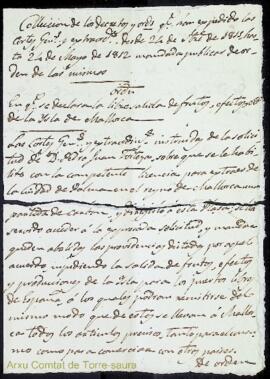 Colleccion de los decretos y ords. q. han expedido las
Cortes Grs. y extraords. desde 24 de 7re. de 1811 has
ta 24 de Mayo de 1812 mandada publicar de or
den de las mismas
orden
En q. se declara la libre salida de frutos, efectos y prods.
de la Isla de Mallorca
Las Cortes Grs. y extraordins. instruidas de la solici
tud de D. Pedro Juan sobre que se le habi
lite con la competente licencia para extraer de
la Ciudad de Palma en el reyno de Mallorca una
partida de y a esta Plaza, han
tenido acceder a la expresada solicitud, y mandar
queden abolidas las providencias dictadas por aquel
acuerdo impidiendo la salida de frutos, efectos
y producciones de la Isla para los puertos libres
de España, a los quales podran remitirse del
mismo modo que de estos se llevan a Mallor
ca todos los articulos precisos, tanto para el consu
mo como para comerciar con otros paises.
de orden
Arxiu Comtal de Torre-saura